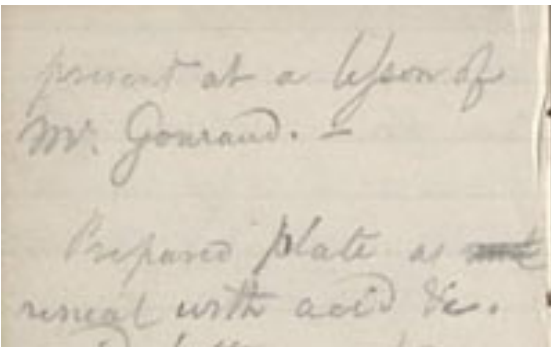 present at a lesson of
Mr. Gouraud. –
Prepared plate as
useual with acid &c.